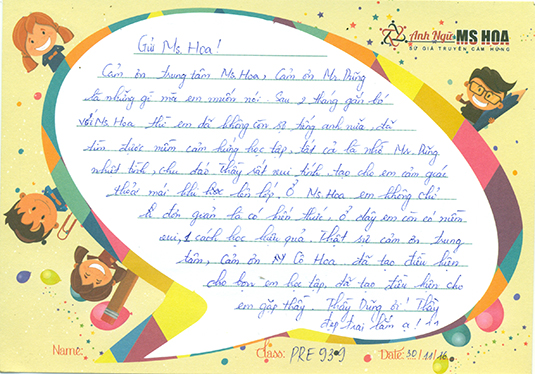 Anh Ngữ MS HOA
SỨ GIẢ TRUYỀN CẢM HỨNG
Gửi Ms. Hoa!
Cảm ơn trung tâm Ms Hoa, Cảm ơn Mr. Dũng
là những gì mà em muốn nói. Sau 2 tháng gắn bó
với Ms. Hoa thì em đã không còn sợ tiếng anh nữa, đã
tìm được niềm cảm hứng học tập, tất cả là nhờ Mr. Dũng
nhiệt tình, chu đáo. Thầy rất vui tính, tạo cho em cảm giác
thoải mái khi học lên lớp. Ở Ms. Hoa em không chỉ
đơn giản là có kiến thức, ở đây em còn có niềm
vui, 1 cách học hiệu quả. Thật sự cảm ơn trung
tâm, cảm ơn Cô Hoa đã tạo điều kiện
cho bọn em học tập, đã tạo điều kiện cho
em gặp thầy. Thầy Dũng ơi! Thầy
đẹp trai lắm ạ! ^^
Name: Class: PRE 939 Date: 30/11/16